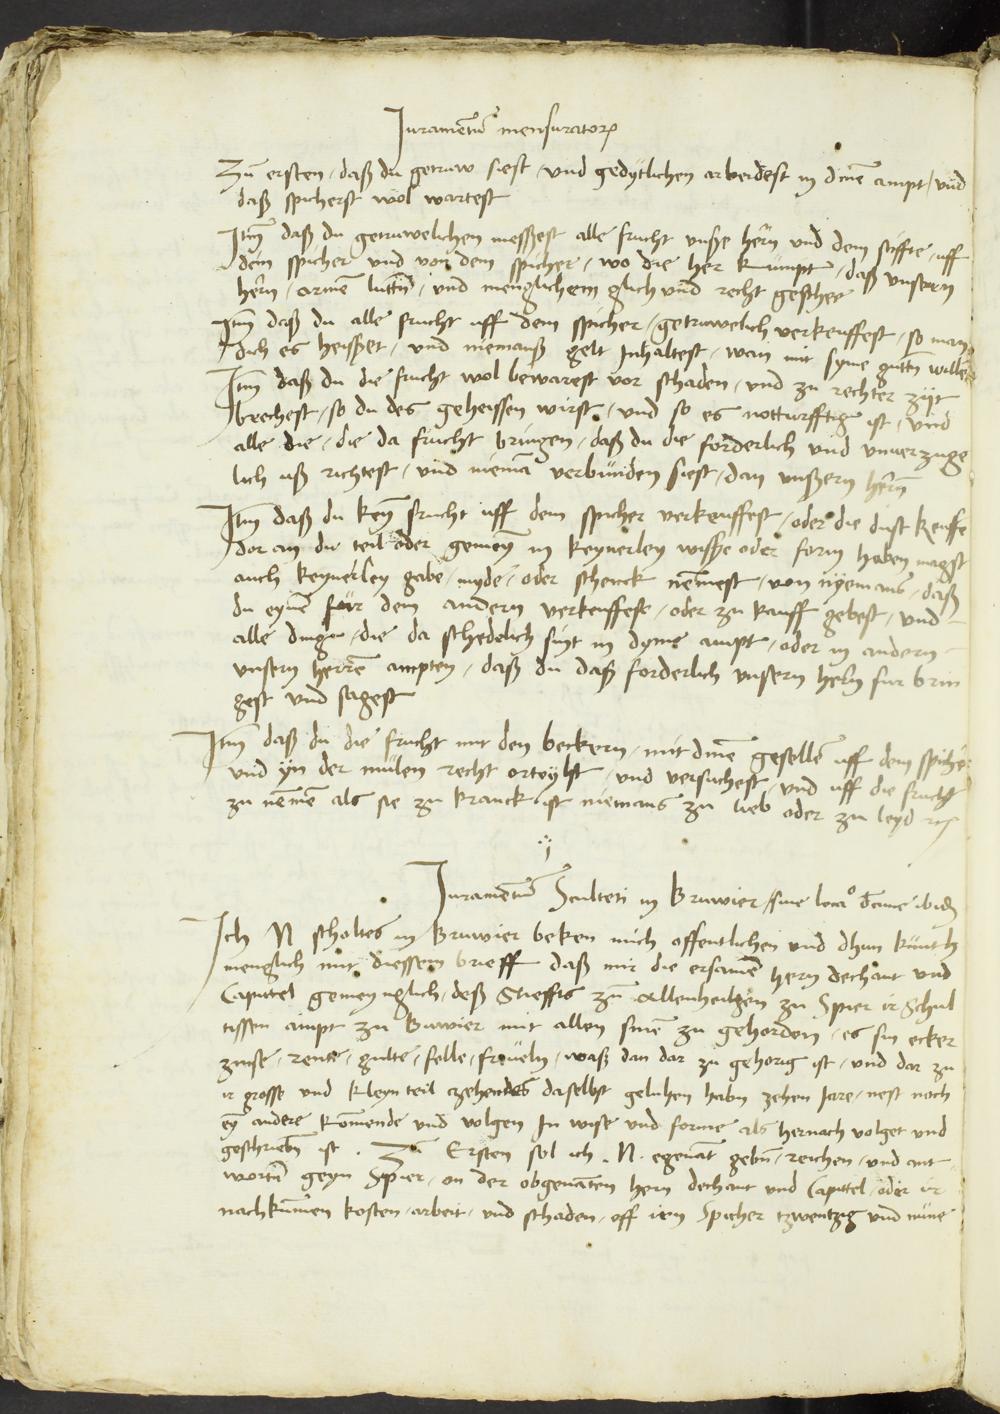 Juramentū mensuratorꝭ
Zū ersten / daß du getruw siest / vnd gedytlichen arbeidest in dinē ampt / vnd
daß spicherß wol wartest
Itm̄ daß du getruwelichen messest alle frucht vnsße hern̄ vnd dem stiffte / uff
dem spicher vnd von dem spicher / wo die her kumpt / daß vnsern
hern̄ / armē luttn̄ / vnd menglichem glich vnd recht geschee
Itm̄ daß du alle frucht uff dem spicher / getruwelich verkeuffest / so man
dich es heisßet / vnd niemanß gelt Inhaltest / wan mit syme guttn̄ willen
Itm̄ daß du die frucht wol bewarest vor schaden / vnd zu rechter zijt
brechest / so du des geheissen wirst / vnd so es notturfftig ist / vnd
alle die / die da frucht bringen / daß du die forderlich vnd vnuerzuge
lich uß richtest / vnd niemā verbunden siest / dan vnßern hern̄
Itm̄ daß du keyn̄ frucht uff dem spicher verkeuffest / oder die dust keuffe
dor an du teil oder gemeyn̄ in keynerley wisße oder form haben magst
auch keynerley gabe / myde / oder schenck nem̄est / von nyemans / daß
du eynē für dem andern verkeuffest / oder zu kauff gebest / vnd
alle ding / die da schedelich sint in dyme ampt / oder in andern
vnsern herrē ampten / daß du daß forderlich vnsern hern̄ fur brin
gest vnd sagest
Itm̄ daß du die frucht mit den beckern / mit dinē gesellē uff dem spicher
vnd yn der mülen recht orteylst / vnd versuchest / vnd uff die frucht
zu nem̄ē als sie zu kranck ist niemans zu lieb oder zu leyd
Juramentū Sculteti in Bruwier / siue
Ich N scholtes in Bruwier beken mich offentlichen vnd dhun kunth
menglich mit diessem brieff daß mir die ersamē hern dechant vnd
Capittel gemeynglich / deß Stieffts zū Allenheilgen zu Spier ir Schul
tissen ampt zu Bruwier mit allen sinē zu gehorden / es sin ecker
zinse / rente / gulte / felle / freueln / waß dan dar zu gehorig ist / vnd dar zu
ir grosse vnd kleyn teil zehendes daselbst geluhen habn zehen Jare / nest noch
eȳ andere kom̄ende vnd volgen In wise vnd forme als hernach volget vnd
geschriebn̄ ist . Zū Ersten sol ich . N . egenāt gebn̄ / reichen / vnd ant
wortn̄ geyn Spier / on der obgenantē hern dechant vnd Capittel / oder ir
nachkum̄en kosten / arbeit / vnd schaden / off iren Spicher tzwentzig vnd nüne